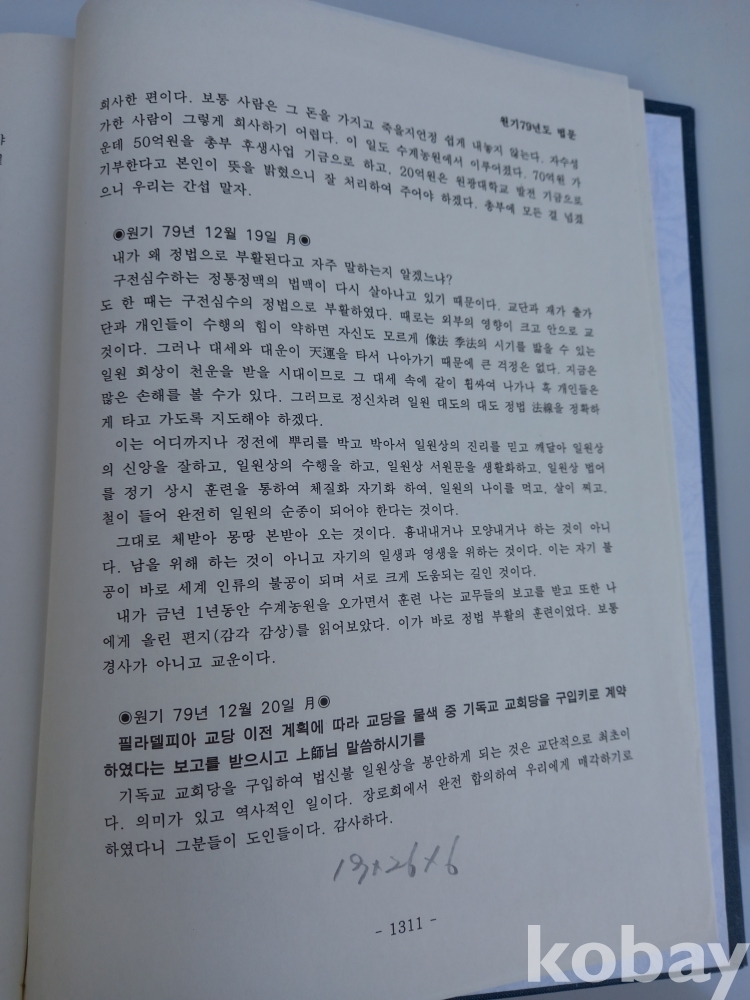 원기79년도 법문
희사한 편이다. 보통 사람은 그 돈을 가지고 죽을지언정 쉽게 내놓지 않는다. 자수성
가한 사람이 그렇게 희사하기 어렵다. 이 일도 수계농원에서 이루어졌다. 70억원 가
운데 50억원을 총부 후생사업 기금으로 하고, 20억원은 원광대학교 발전 기금으로
기부한다고 본인이 뜻을 밝혔으니 잘 처리하여 주어야 하겠다. 총부에 모든 걸 넘겼
으니 우리는 간섭 말자.
◉원기 79년 12월 19일 月◉
내가 왜 정법으로 부활된다고 자주 말하는지 알겠느냐?
구전심수하는 정통정맥의 법맥이 다시 살아나고 있기 때문이다. 교단과 재가 출가
도 한 때는 구전심수의 정법으로 부활하였다. 때로는 외부의 영향이 크고 안으로 교
단과 개인들이 수행의 힘이 약하면 자신도 모르게 像法 季法의 시기를 밟을 수 있는
것이다. 그러나 대세와 대운이 天運을 타서 나아가기 때문에 큰 걱정은 없다. 지금은
일원 회상이 천운을 받을 시대이므로 그 대세 속에 같이 휩싸여 나가나 혹 개인들은
많은 손해를 볼 수가 있다. 그러므로 정신차려 일원 대도의 대도 정법 法線을 정확하
게 타고 가도록 지도해야 하겠다.
이는 어디까지나 정전에 뿌리를 박고 박아서 일원상의 진리를 믿고 깨달아 일원상
의 신앙을 잘하고, 일원상의 수행을 하고, 일원상 서원문을 생활화하고, 일원상 법어
를 정기 상시 훈련을 통하여 체질화 자기화 하여, 일원의 나이를 먹고, 살이 찌고,
철이 들어 완전히 일원의 순종이 되어야 한다는 것이다.
그대로 체받아 몽땅 본받아 오는 것이다. 흉내내거나 모양내거나 하는 것이 아니
다. 남을 위해 하는 것이 아니고 자기의 일생과 영생을 위하는 것이다. 이는 자기 불
공이 바로 세계 인류의 불공이 되며 서로 크게 도움되는 길인 것이다.
내가 금년 1년동안 수계농원을 오가면서 훈련 나는 교무들의 보고를 받고 또한 나
에게 올린 편지(감각 감상)를 읽어보았다. 이가 바로 정법 부활의 훈련이었다. 보통
경사가 아니고 교운이다.
◉원기 79년 12월 20일 月◉
필라델피아 교당 이전 계획에 따라 교당을 물색 중 기독교 교회당을 구입키로 계약
하였다는 보고를 받으시고 上師님 말씀하시기를
기독교 교회당을 구입하여 법신불 일원상을 봉안하게 되는 것은 교단적으로 최초이
다. 의미가 있고 역사적인 일이다. 장로회에서 완전 합의하여 우리에게 매각하기로
하였다니 그분들이 도인들이다. 감사하다.
19×26×6
- 1311 -
kobay